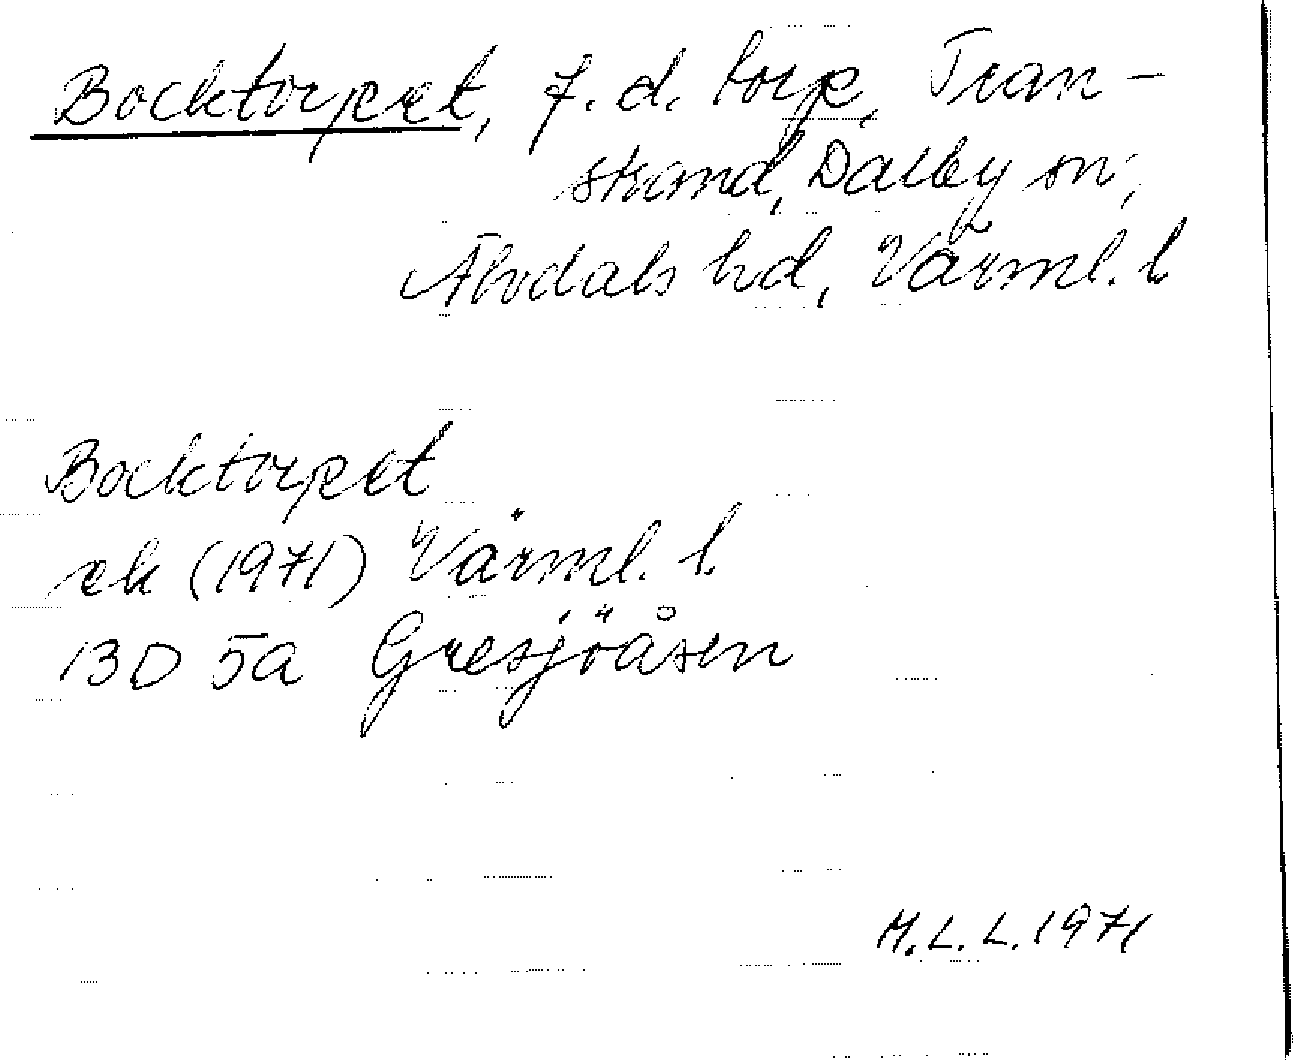 Bocktorpet, f.d. torp, Tran-
strand, Dalby sn,
Älvdals hd, Värml. l
Bocktorpet
ek (1971) Värml. l.
13D 5a Gresjöåsen
M.L.L. 1971